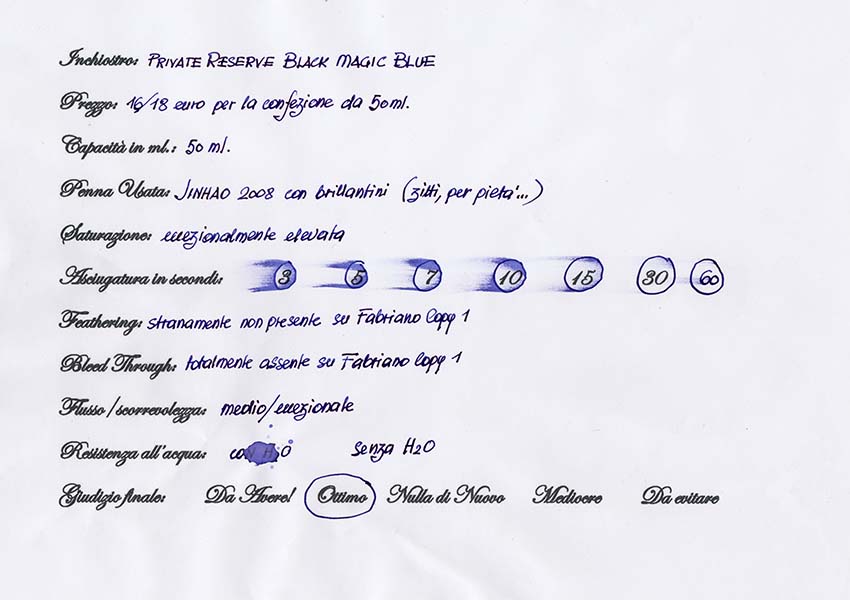 Inchiostro: PRIVATE RESERVE BLACK MAGIC BLUE
Prezzo: 16/18 euro per la confezione da 50ml.
Capacità in ml.: 50 ml.
Penna Usata: JINHAO 2008 con brillantini (zitti, per pietà...)
Saturazione: eccezionalmente elevata
Asciugatura in secondi: 3 5 7 10 15 30 60
Feathering: stranamente non presente su Fabriano Copy 1
Bleed Through: totalmente assente su Fabriano Copy 1
Flusso/scorrevolezza: medio/eccezionale
Resistenza all'acqua: con H2O senza H2O
Giudizio finale: Da Avere! Ottimo Nulla di Nuovo Mediocre Da evitare